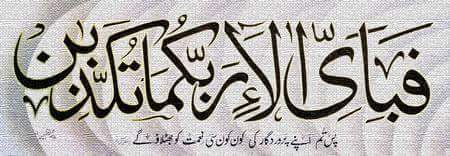 فَبِاَىِّ اٰلَاءِ رَبِّكُمَا تُكَذِّبٰنِ
پس تم اپنے پروردگار کی کون کون سی نعمت کو جھٹلاؤ گے